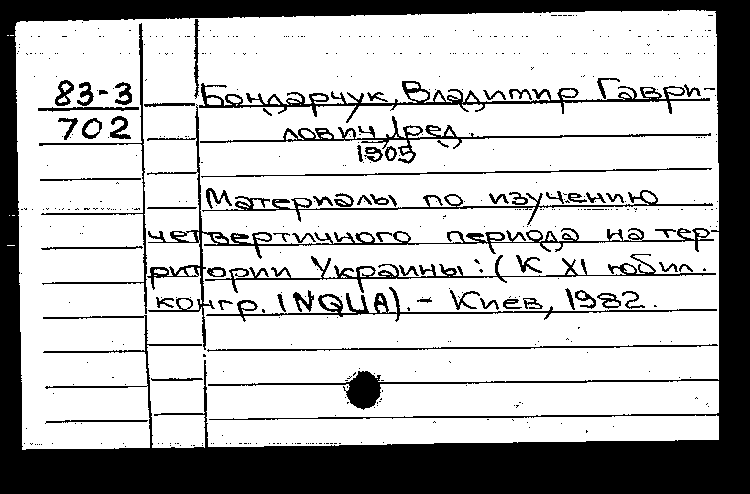 83-3
702
Бондарчук, Владимир Гаври-
лович, ред.
1905
Материалы по изучению
четвертичного периода на тер-
ритории Украины: (К XI юбил.
конгр. INQUA). - Киев, 1982.